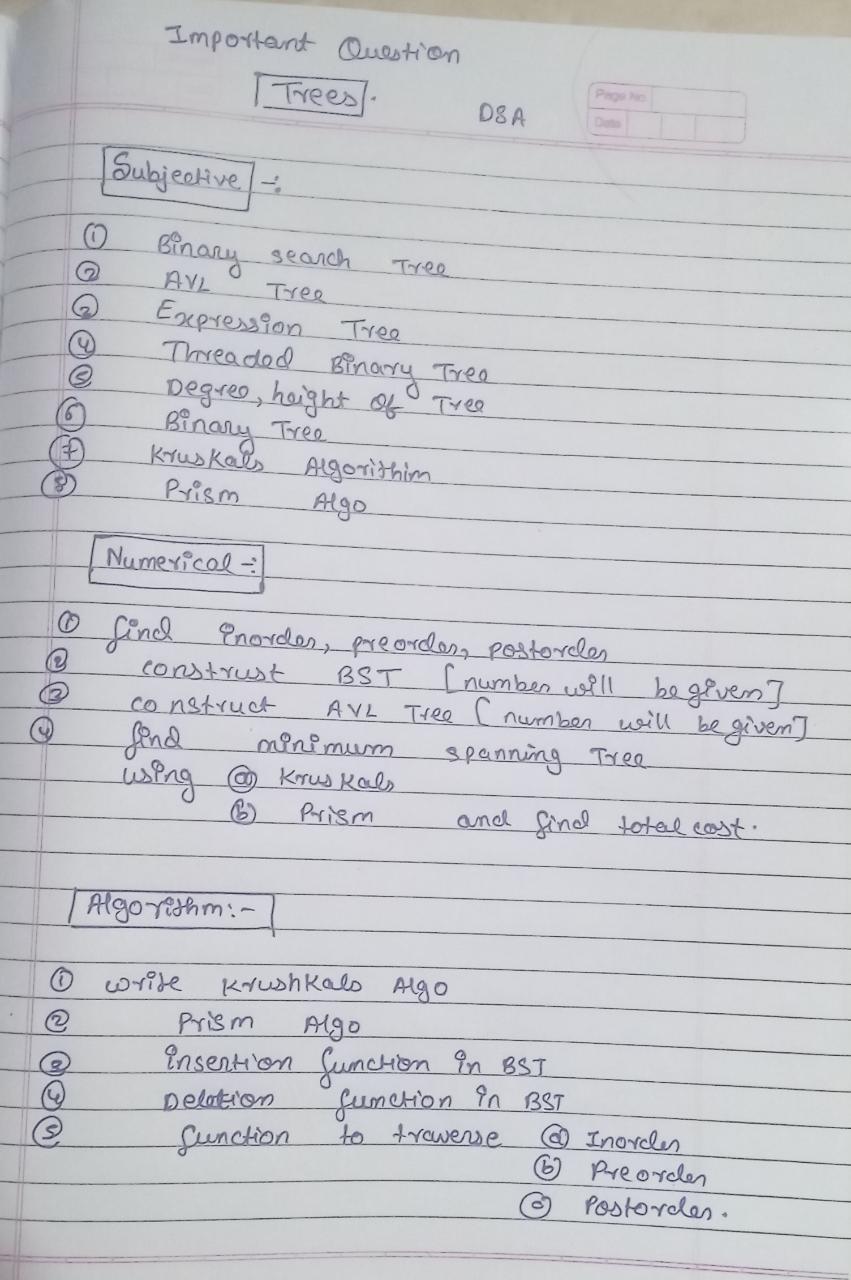 Important Question
Trees.
DSA
Page No
Date
Subjective -:
① Binary search Tree
② AVL Tree
③ Expression Tree
④ Threaded Binary Tree
⑤ Degree, height of Tree
⑥ Binary Tree
⑦ Kruskals Algorithim
⑧ Prism Algo
Numerical -:
① find inorder, preorder, postorder
② construst BST [number will be given]
③ construct AVL Tree [number will be given]
④ find minimum spanning Tree
using ⓐ Kruskals
ⓑ Prism and find total cost.
Algorithm:-
① write Krushkals Algo
② Prism Algo
③ insertion function in BST
④ Deletion function in BST
⑤ function to traverse ⓐ Inorder
ⓑ Preorder
ⓒ Postorder.